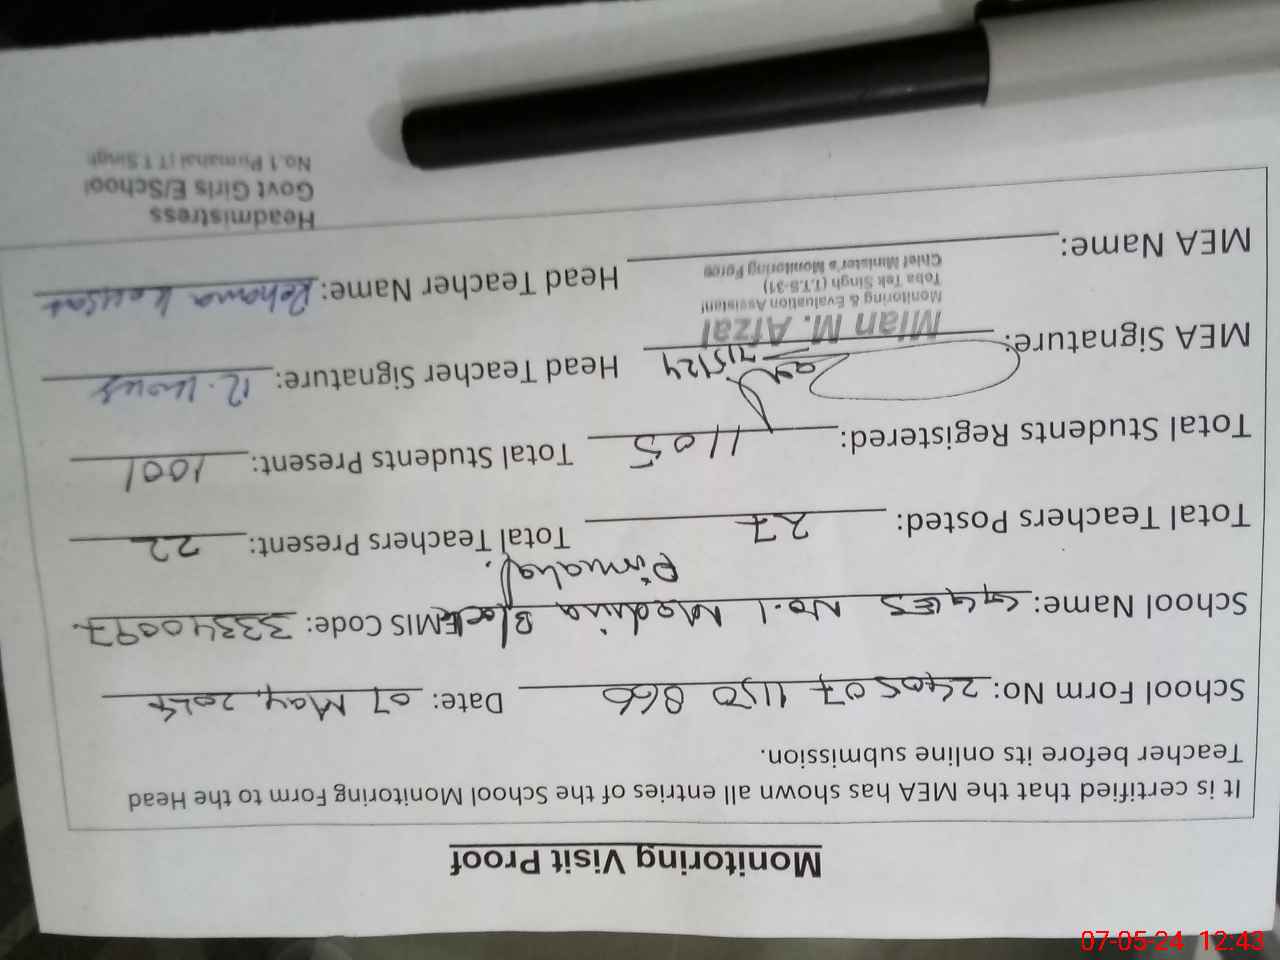 Monitoring Visit Proof
It is certified that the MEA has shown all entries of the School Monitoring Form to the Head
Teacher before its online submission.
School Form No: 240507 1150 866 Date: 07 May, 2024
School Name: GGES No.1 Madina Block EMIS Code: 33340097
Pirmahal.
Total Teachers Posted: 27 Total Teachers Present: 22
Total Students Registered: 1105 Total Students Present: 1001
MEA Signature: 7/5/24 Head Teacher Signature: R. Kous
Mian M. Afzal
Monitoring & Evaluation Assistant
Toba Tek Singh (T.T.S-31)
Chief Minister's Monitoring Force
MEA Name: Head Teacher Name: Rehana Kousar
Headmistress
Govt Girls E/School
No.1 Pirmahal (T.T.Singh
07-05-24 12:43